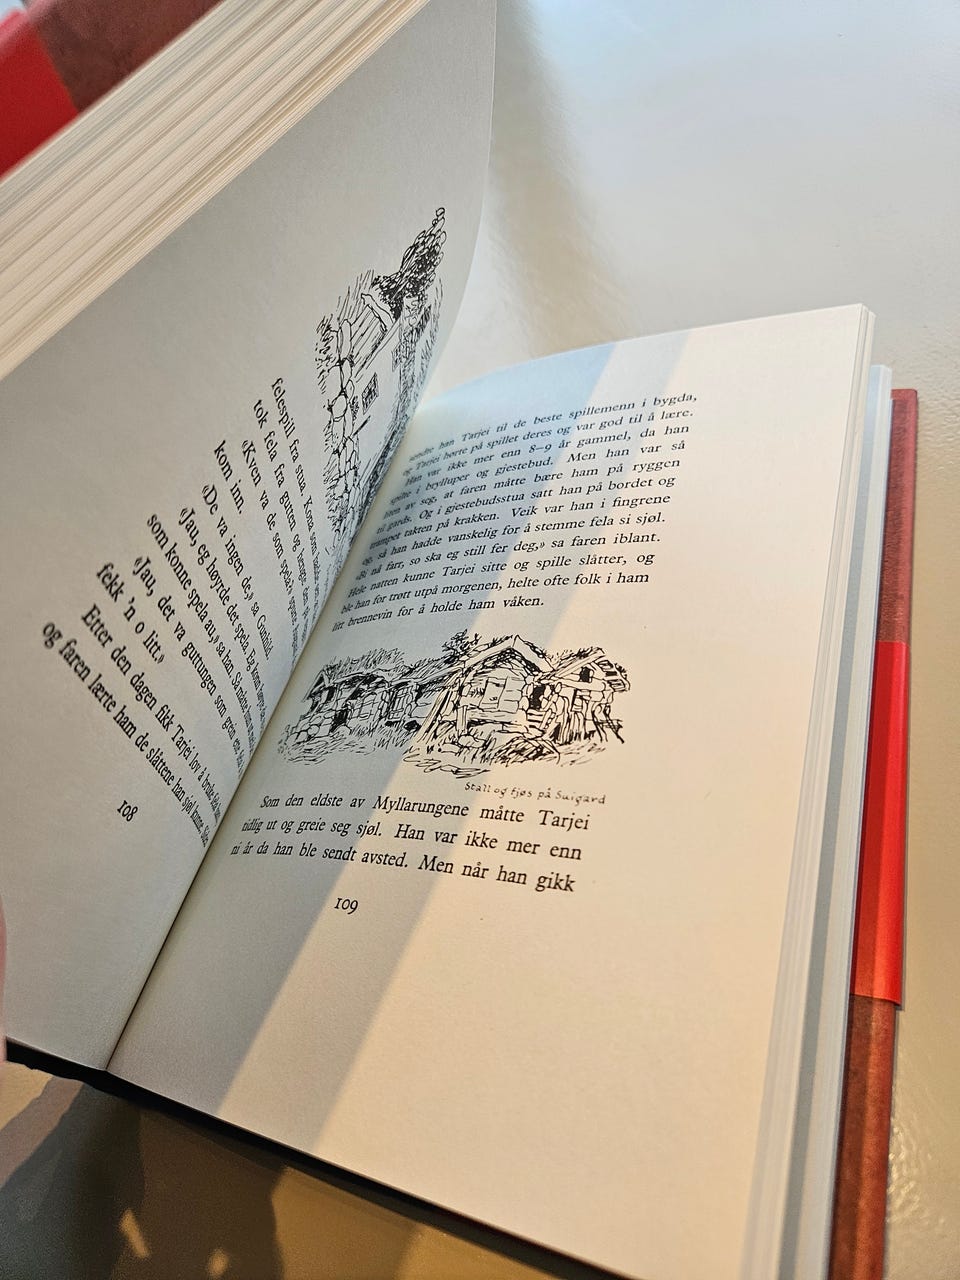 felespill fra stua. Kona som
tok fela fra gutten og hengte den
«Kven va de som spela?» spurte
kom inn.
«De va ingen de,» sa Gunhild.
«Jau, eg høyrde det spela. Eg kom
som konne spela au,» sa han. Så måtte
«Jau, det va guttungen som
fekk 'n o litt.»
Etter den dagen fikk Tarjei lov å bruke fela
og faren lærte ham de slåttene han sjøl kunne.
108
sendte han Tarjei til de beste spillemenn i bygda,
og Tarjei hørte på spillet deres og var god til å lære.
Han var ikke mer enn 8–9 år gammel, da han
spilte i brylluper og gjestebud. Men han var så
liten av seg, at faren måtte bære ham på ryggen
til gards. Og i gjestebudsstua satt han på bordet og
trampet takten på krakken. Veik var han i fingrene
og, så han hadde vanskelig for å stemme fela si sjøl.
«Si nå farr, so ska eg still fer deg,» sa faren iblant.
Hele natten kunne Tarjei sitte og spille slåtter, og
ble han for trøtt utpå morgenen, helte ofte folk i ham
litt brennevin for å holde ham våken.
Stall og fjøs på Suigard
Som den eldste av Myllarungene måtte Tarjei
tidlig ut og greie seg sjøl. Han var ikke mer enn
ni år da han ble sendt avsted. Men når han gikk
109